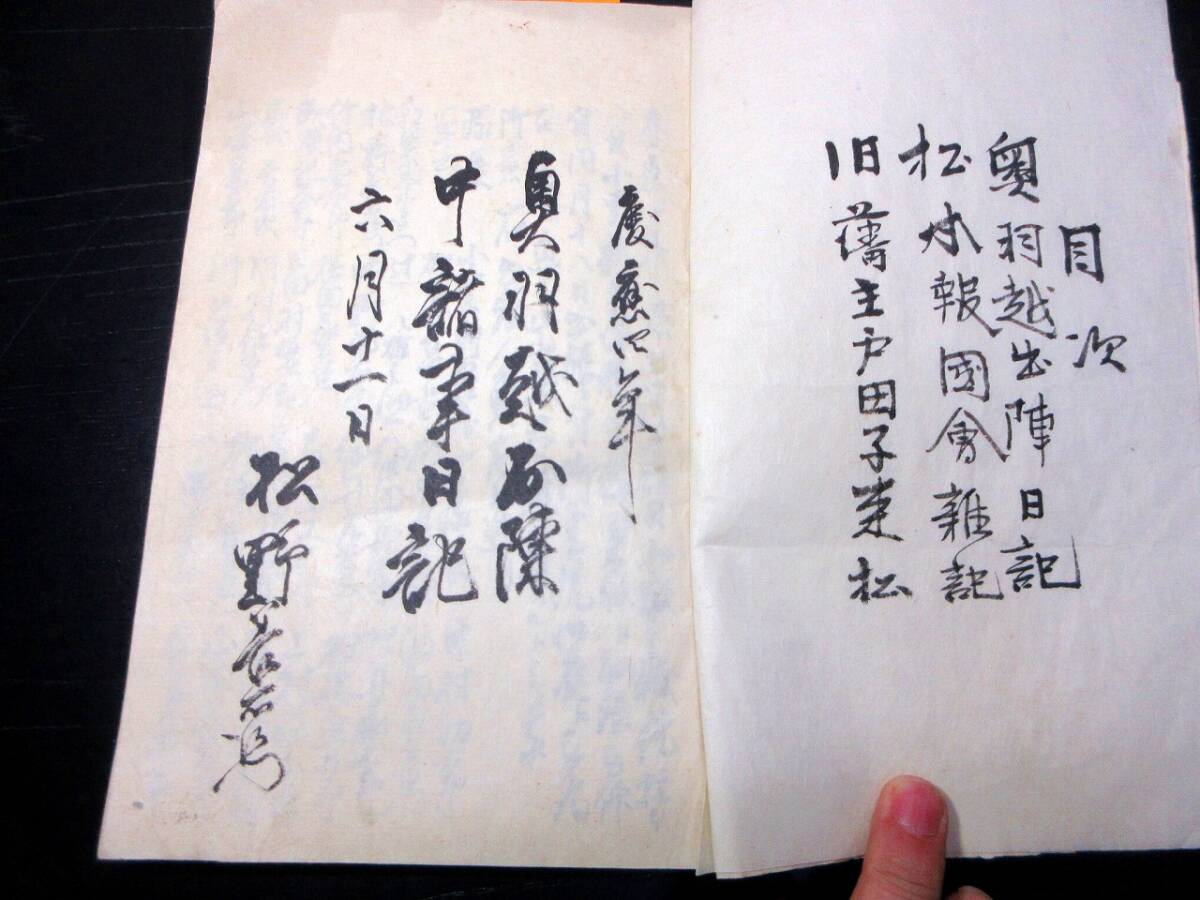 目次
奥羽越出陣日記
松本報國會雜記
旧藩主戸田子松
慶應四年
奥羽越出陣
中諸事日記
六月十一日
松野